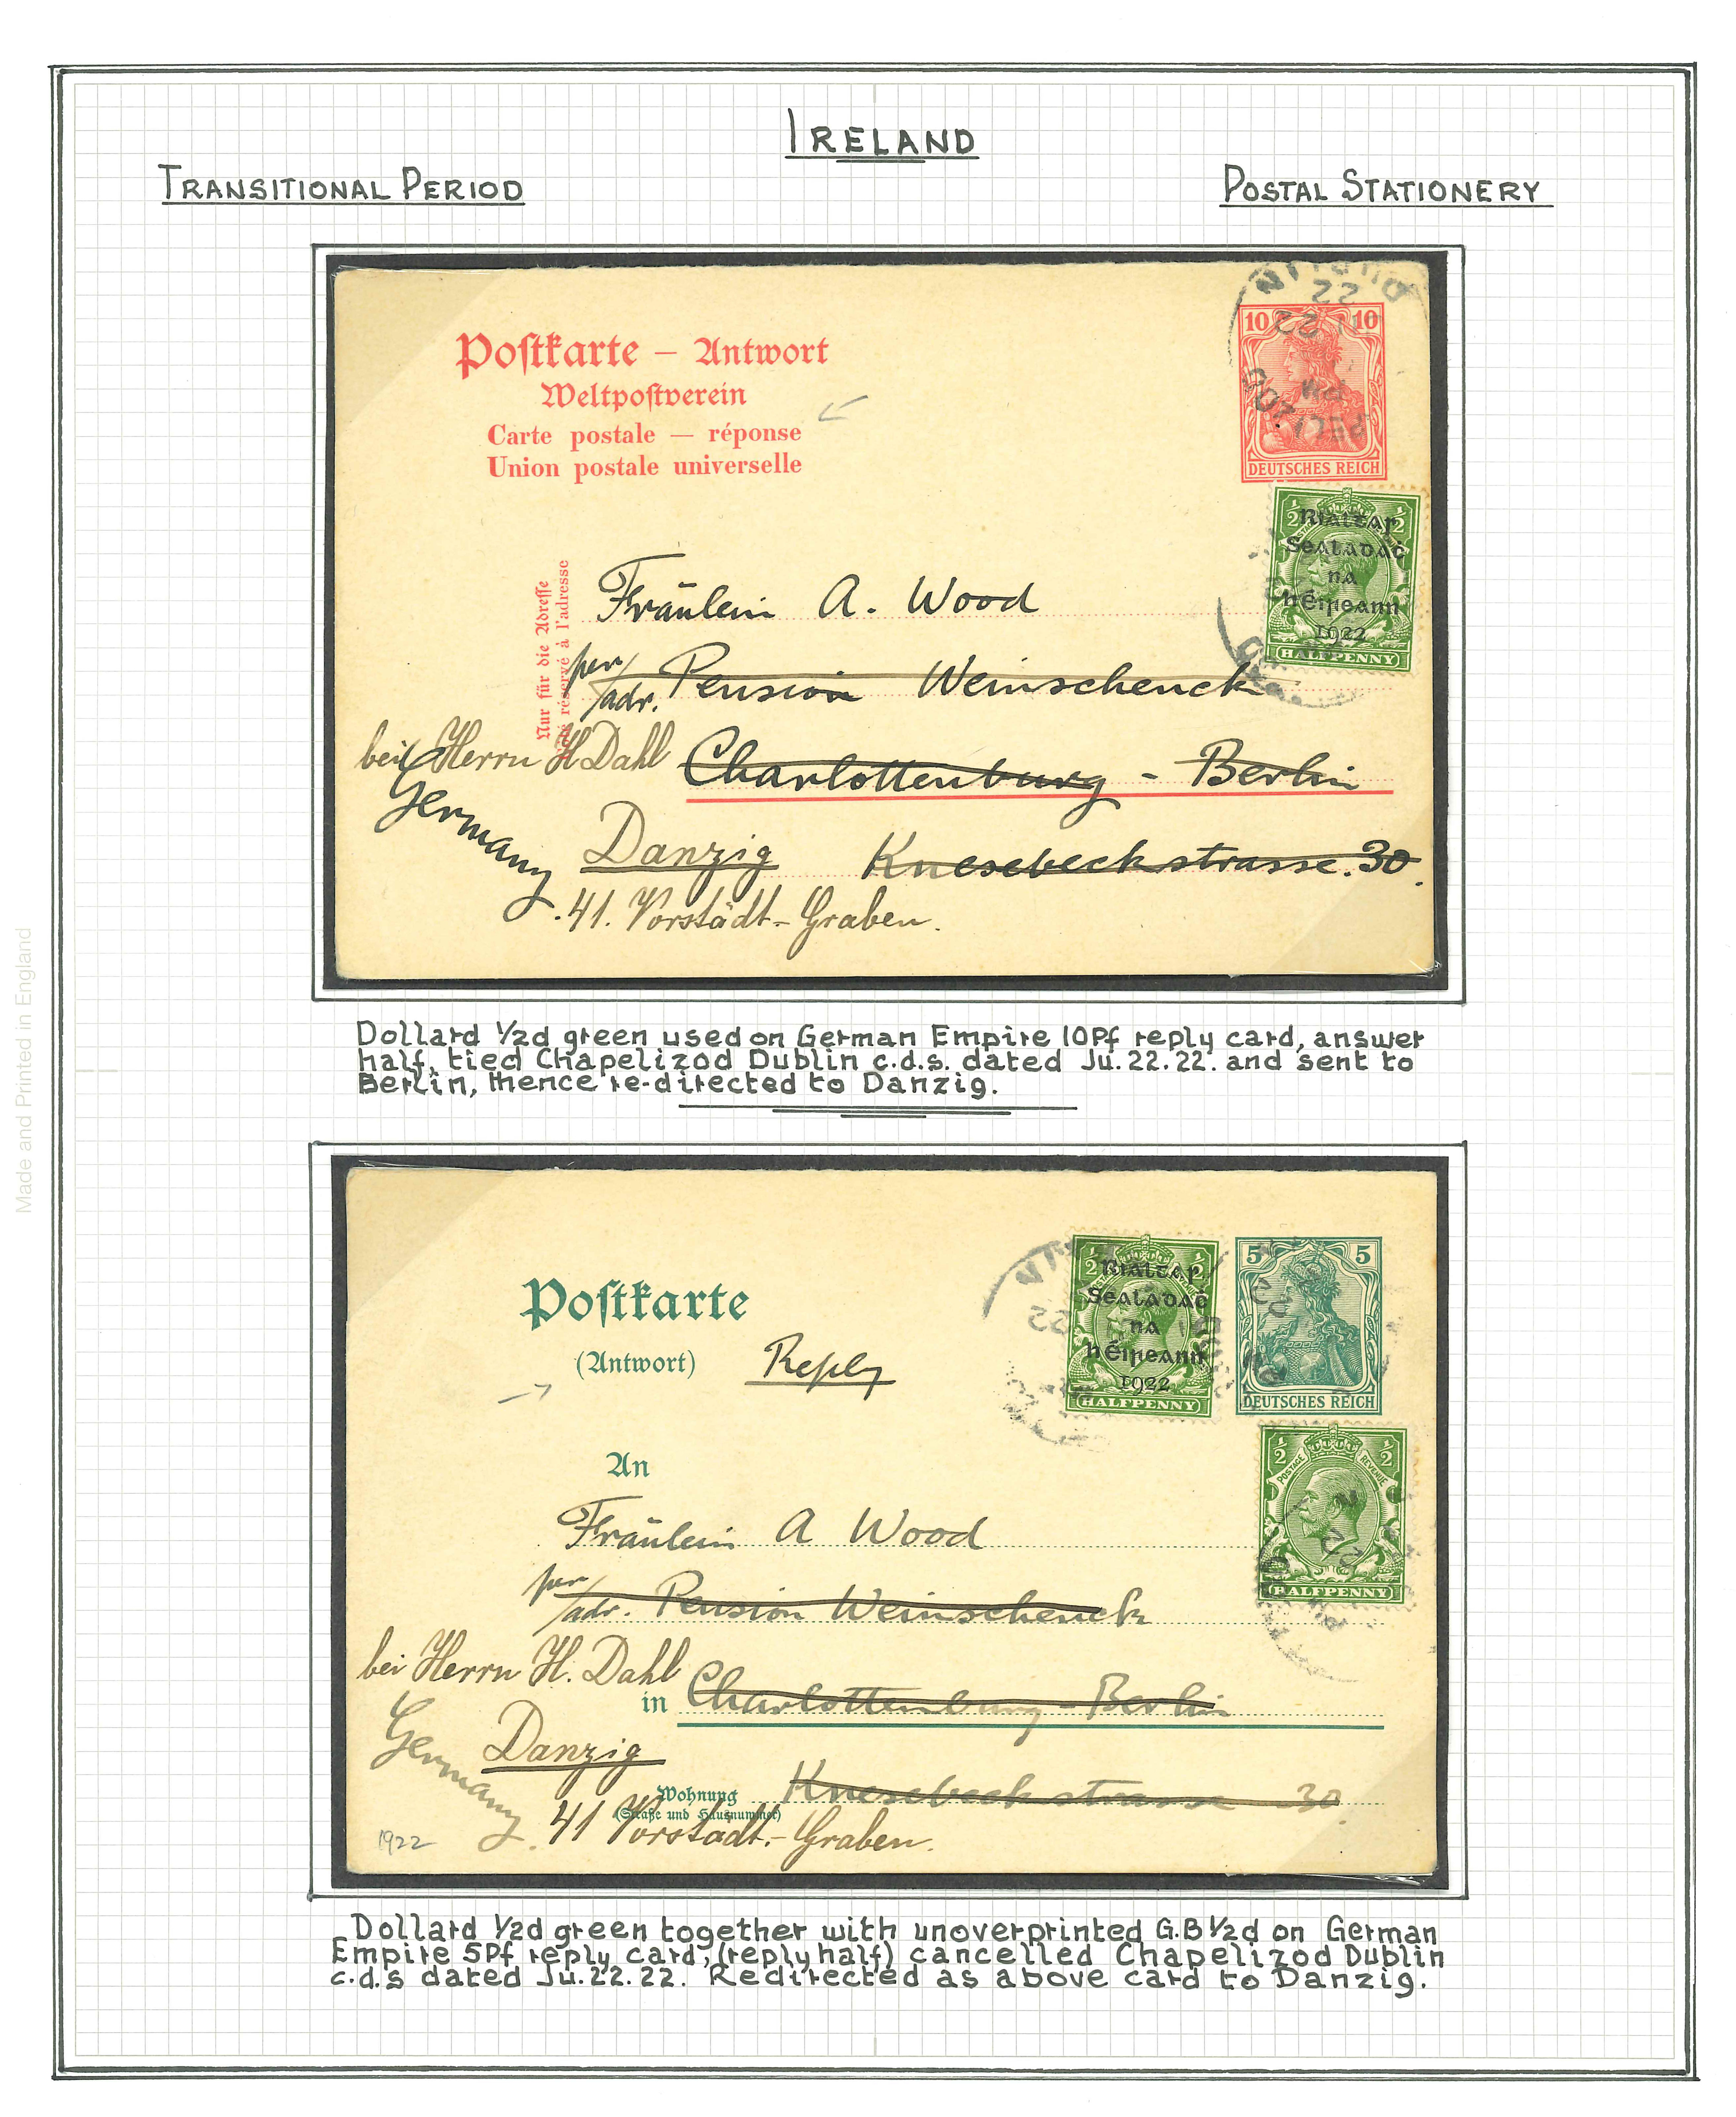 IRELAND
TRANSITIONAL PERIOD
POSTAL STATIONERY
DUBLIN
22
22
PM
10 10
DEUTSCHES REICH
Postkarte – Antwort
Weltpostverein
Carte postale — réponse
Union postale universelle
½ ½
Rialtar
Sealadaċ
na
hÉireann
1922
HALFPENNY
Nur für die Adresse
Côté réservé à l'adresse
Fräulein A. Wood
per/adr. Pension Weinschenck
bei Herrn H Dahl
Charlottenburg - Berlin
Germany
Danzig
Knesebeckstrasse. 30.
41. Vorstädt-Graben.
Dollard ½d green used on German Empire 10Pf reply card, answer
half, tied Chapelizod Dublin c.d.s. dated Ju.22.22. and sent to
Berlin, thence re-directed to Danzig.
Postkarte
(Antwort)
Reply
½ ½
Rialtar
Sealadaċ
na
hÉireann
1922
HALFPENNY
5 5
DEUTSCHES REICH
½ ½
POSTAGE REVENUE
HALFPENNY
An
Fräulein A Wood
per/adr. Pension Weinschenck
bei Herrn H. Dahl
in Charlottenburg - Berlin
Germany
Danzig
Wohnung
(Straße und Hausnummer)
Knesebeckstrasse 30
41 Vorstädt.-Graben.
1922
Dollard ½d green together with unoverprinted G.B ½d on German
Empire 5Pf reply card, (reply half) cancelled Chapelizod Dublin
c.d.s dated Ju.22.22. Redirected as above card to Danzig.
Made and Printed in England